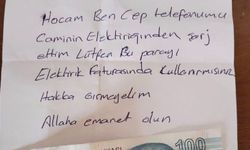 Hocam Ben Cep telefonumu
Caminin Elektiriğinden şarj
ettim Lütfen Bu parayı
Elektirik faturasında kullanırmısınız
Hakka Girmeyelim
Allaha emanet olun
100